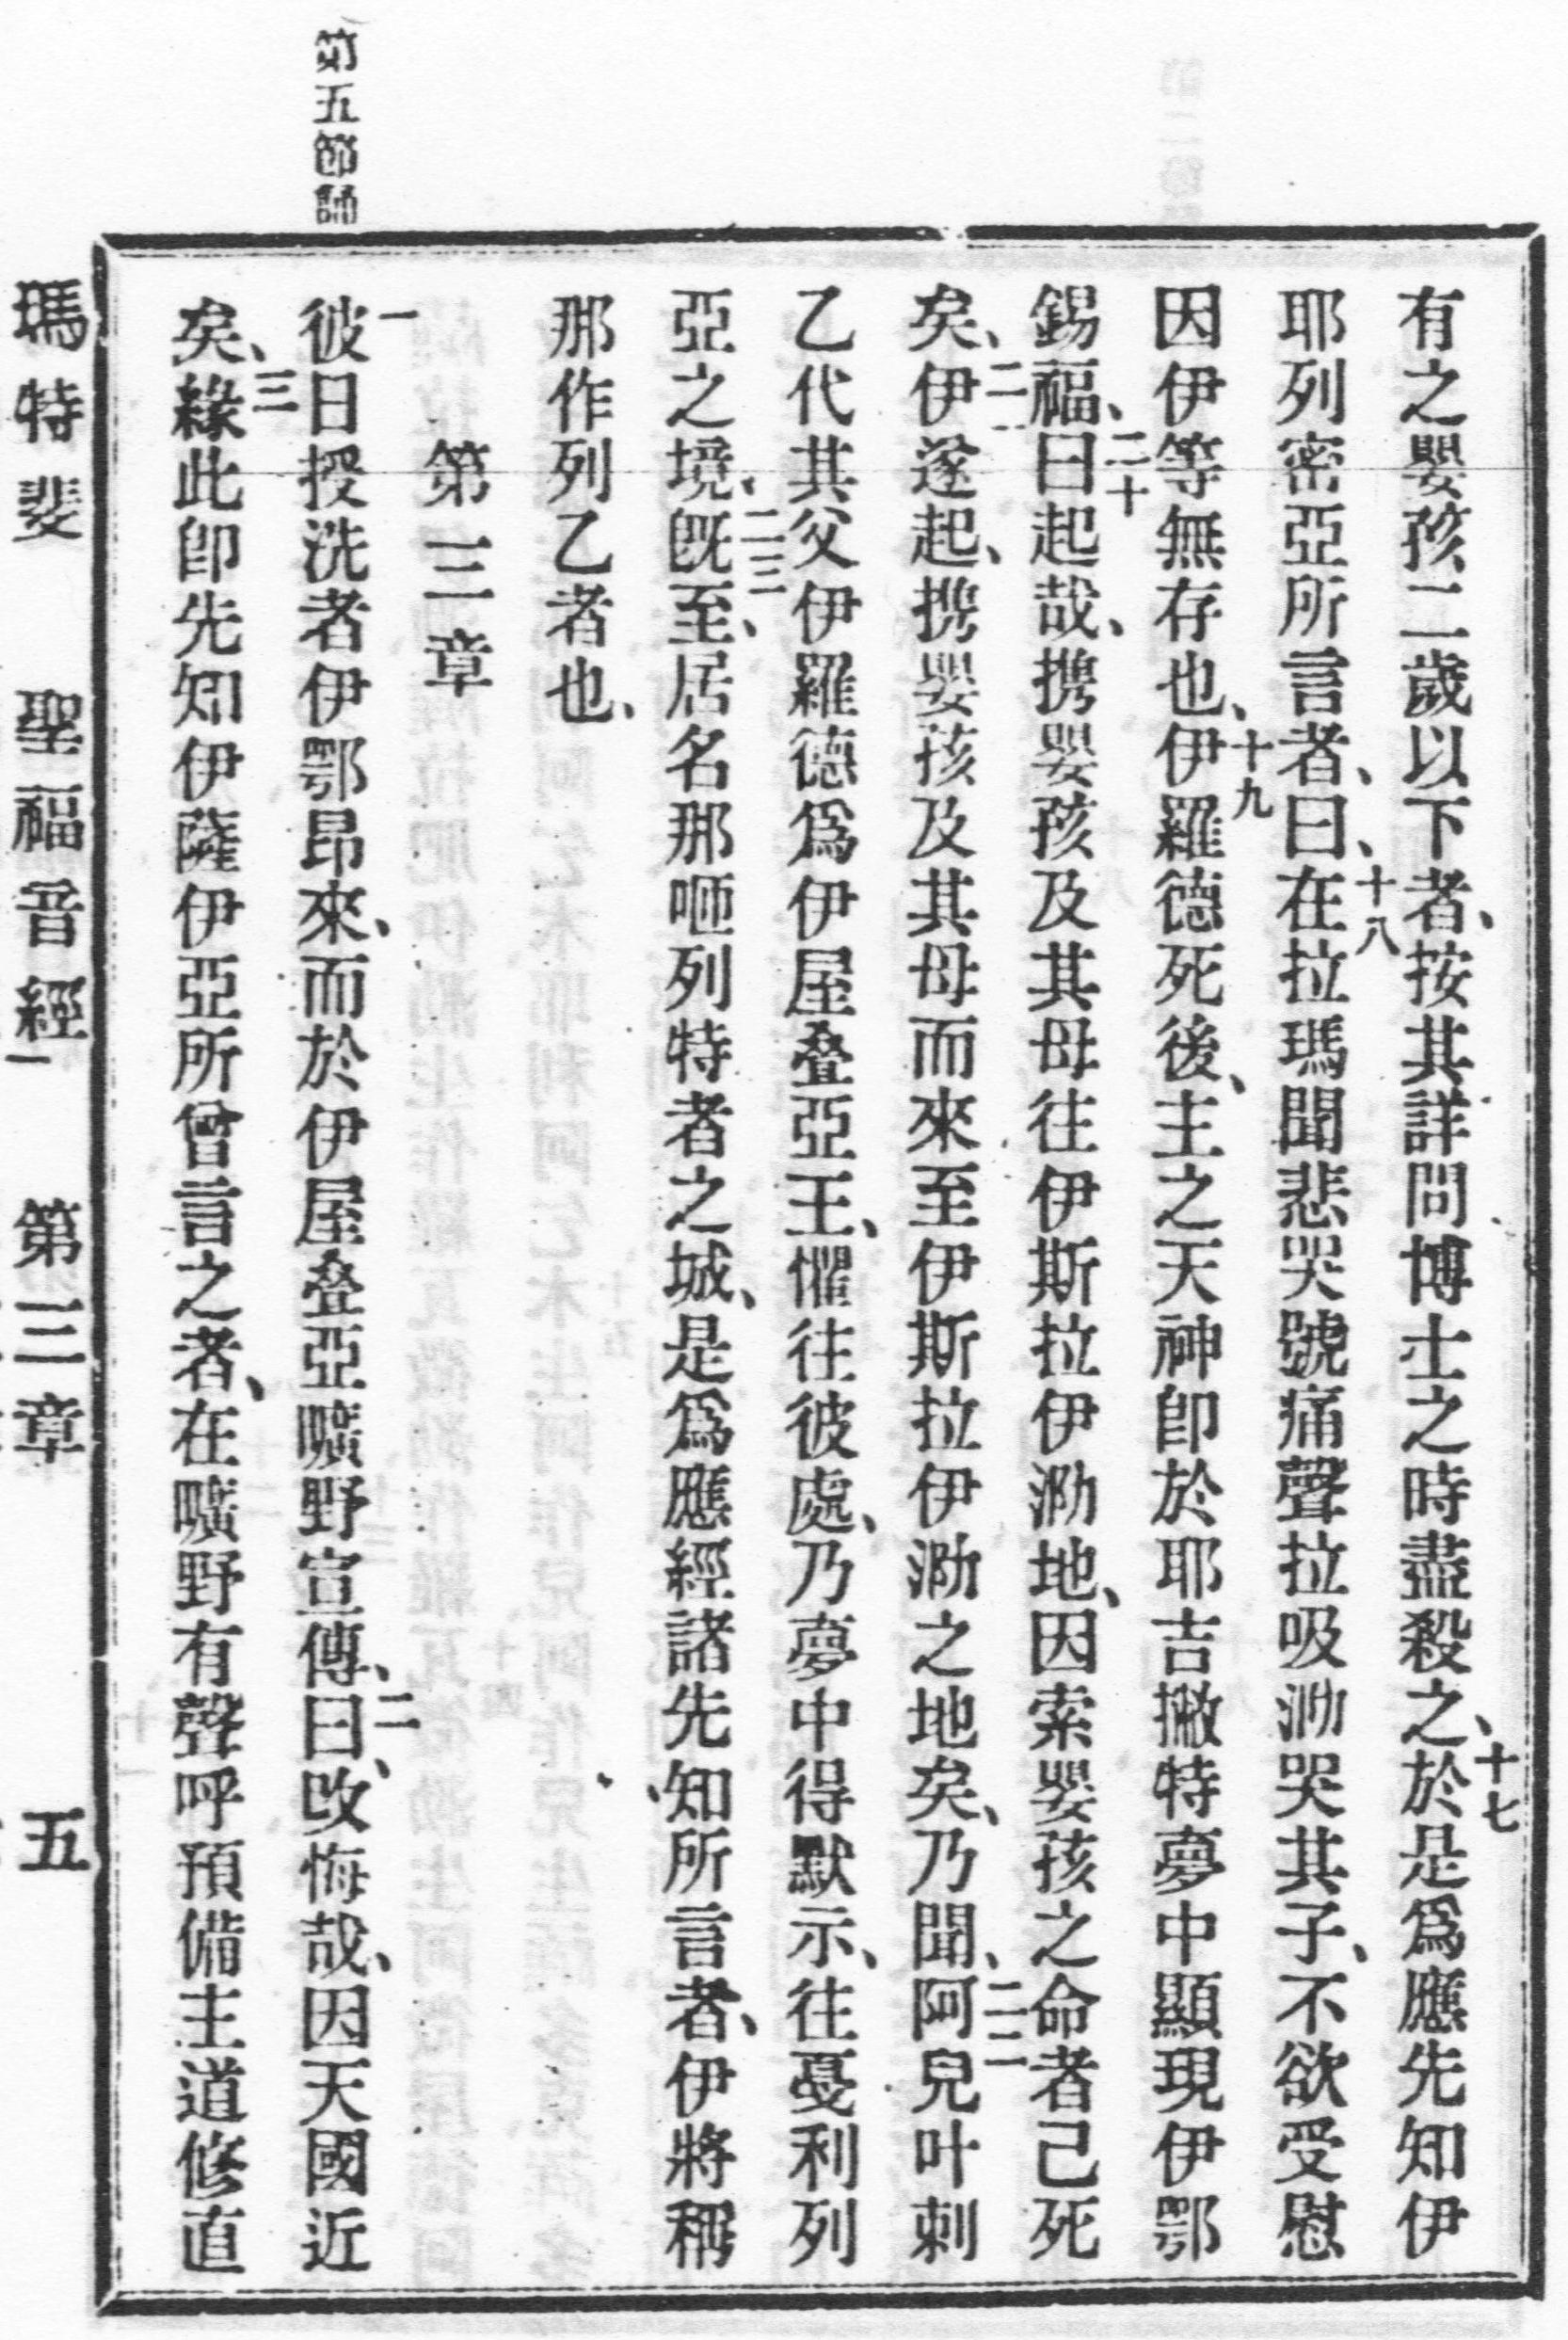 第五節師
有之嬰孩二歲以下者、按其詳問博士之時盡殺之、十七於是爲應先知伊
耶列密亞所言者、曰、十八在拉瑪聞悲哭號痛聲拉吸泐哭其子、不欲受慰
因伊等無存也、十九伊羅德死後、主之天神卽於耶吉撇特夢中顯現伊鄂
錫福、二十曰起哉、携嬰孩及其母往伊斯拉伊泐地、因索嬰孩之命者己死
矣、二一伊遂起、携嬰孩及其母而來至伊斯拉伊泐之地矣、乃聞、二二阿兒叶剌
乙代其父伊羅德爲伊屋叠亞王、懼往彼處、乃夢中得默示、往戞利列
亞之境、二三旣至、居名那咂列特者之城、是爲應經諸先知所言者、伊將稱
那作列乙者也、
第三章
一彼日授洗者伊鄂昂來、而於伊屋叠亞曠野宣傳、二曰、改悔哉、因天國近
矣、三緣此卽先知伊薩伊亞所曾言之者、在曠野有聲呼預備主道修直
瑪特斐 聖福音經一 第三章 五